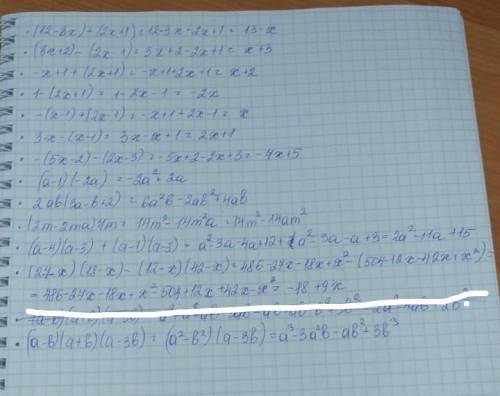 ·(12-3x)+(2x+1)=12-3x-2x+1= 13-x
·(3x+2)-(2x-1)=3x+2-2x+1= x+3
·-x+1+(2x+1)=-x+1+2x+1= x+2
·1-(2x+1)=1-2x-1=-2x
·-(x-1)+(2x-1)=-x+1+2x-1=x
·3x-(x-1)=3x-x+1=2x+1
·-(5x-2)-(2x-3)=-5x+2-2x+3=-7x+5
·(a-1)(-2a)=-2a²+2a
·2ab(3a-b+2)=6a²b-2ab²+4ab
·(2m-2ma)7m=14m²-14m²a=14m²-14am²
·(a-4)(a-3)+(a-1)(a-3)=a²-3a-4a+12+a²-3a-a+3=2a²-11a+15
·(27-x)(18-x)-(12-x)(42-x)=486-27x-18x+x²-(504-12x-42x+x²)=
=486-27x-18x+x²-504+12x+42x-x²=-18+9x
·(a-b)(a+b)(a-3b)=(a²-b²)(a-3b)=a³-3a²b-ab³+3b³